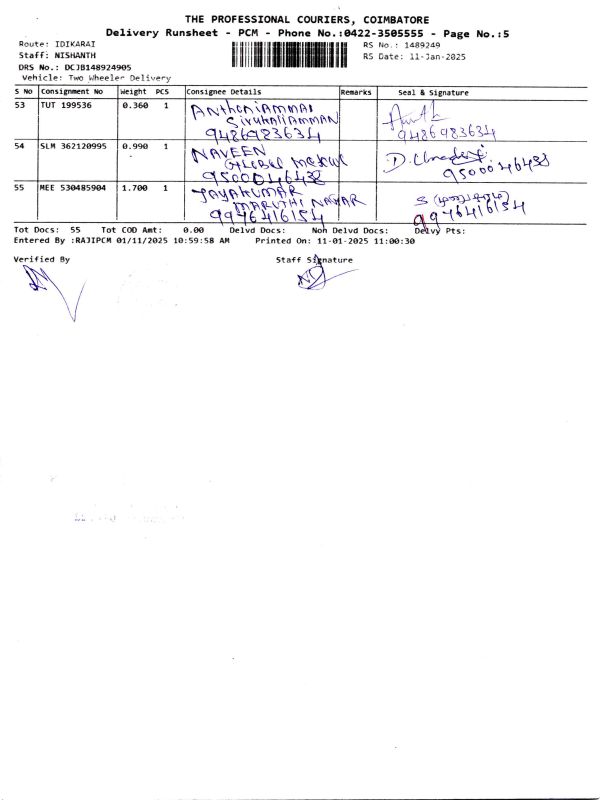 THE PROFESSIONAL COURIERS, COIMBATORE
Delivery Runsheet - PCM - Phone No.:0422-3505555 - Page No.:5
Route: IDIKARAI
RS No.: 1489249
Staff: NISHANTH
RS Date: 11-Jan-2025
DRS No.: DCJB148924905
Vehicle: Two Wheeler Delivery
S No Consignment No Weight PCS Consignee Details Remarks Seal & Signature
53 TUT 199536 0.360 1 ANthoniAMMAl
SivuKaliAMMAN
9486983634 9486983634
54 SLM 362120995 0.990 1 NAVEEN
9500046488 9500046488
55 MEE 530485904 1.700 1 JAYAKUMAR
MARUTHI NAGAR
9976416154 9976416154
Tot Docs: 55 Tot COD Amt: 0.00 Delvd Docs: Non Delvd Docs: Delvy Pts:
Entered By :RAJIPCM 01/11/2025 10:59:58 AM Printed On: 11-01-2025 11:00:30
Verified By Staff Signature